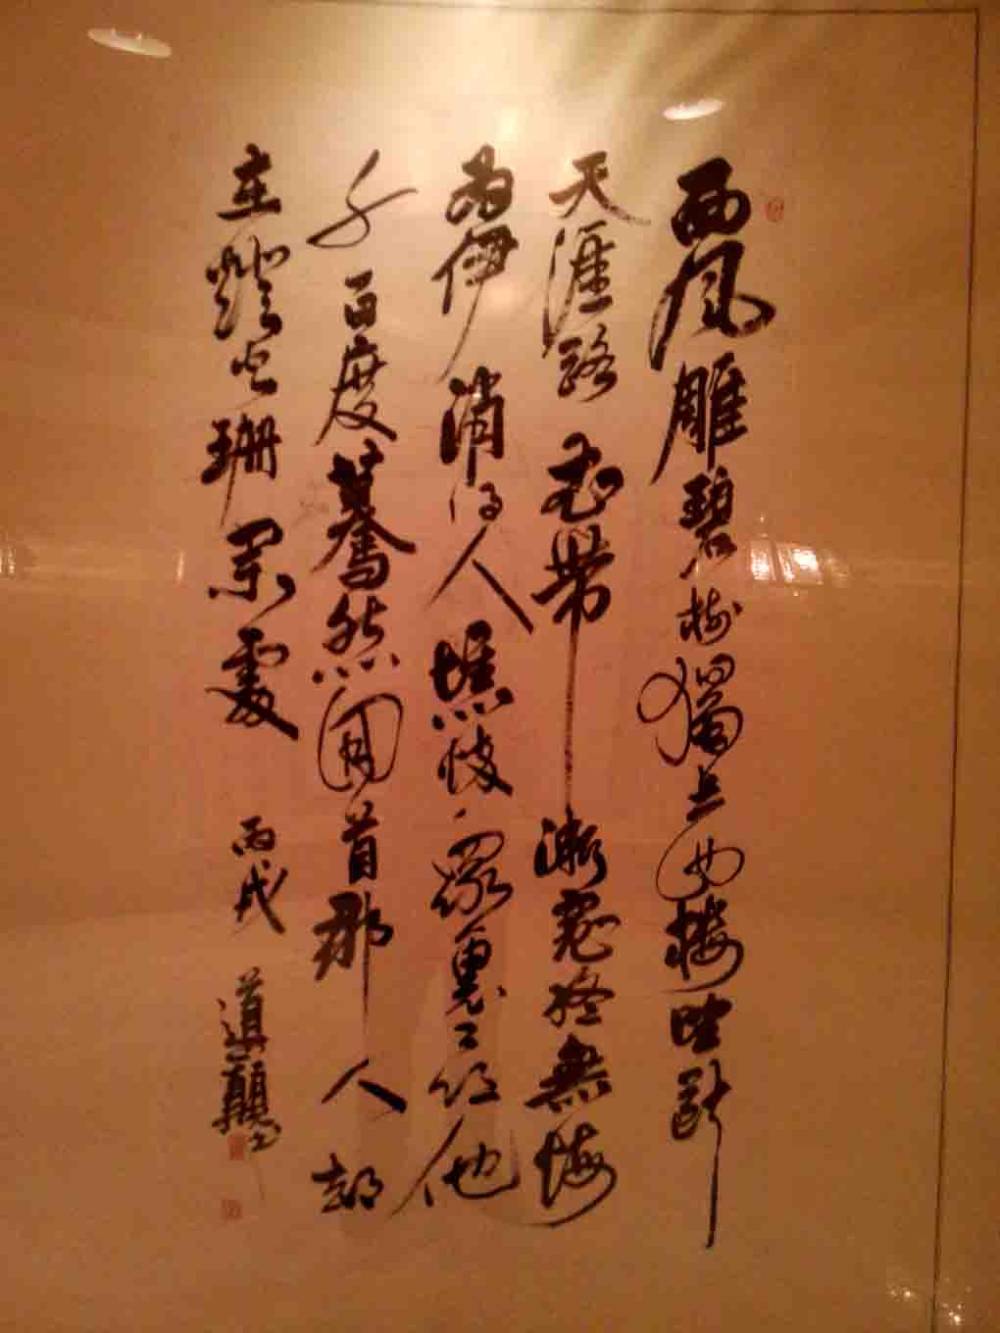 西風雕碧樹獨上西樓望斷
天涯路衣帶漸寬終無悔
為伊消得人憔悴眾裏尋他
千百度驀然回首那人却
在燈火珊闌處 丙戌 道書